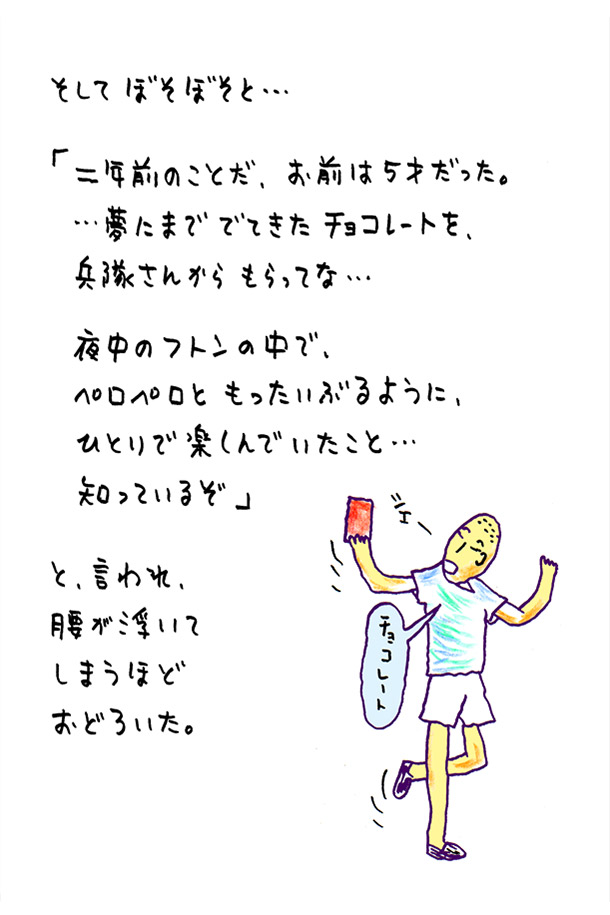 そして ぼそぼそと…
「二年前のことだ、お前は5才だった。
…夢にまで でてきた チョコレートを、
兵隊さんから もらってな…
夜中のフトンの中で、
ペロペロと もったいぶるように、
ひとりで楽しんでいたこと…
知っているぞ」
ジェー
チョコレート
と、言われ、
腰が浮いて
しまうほど
おどろいた。